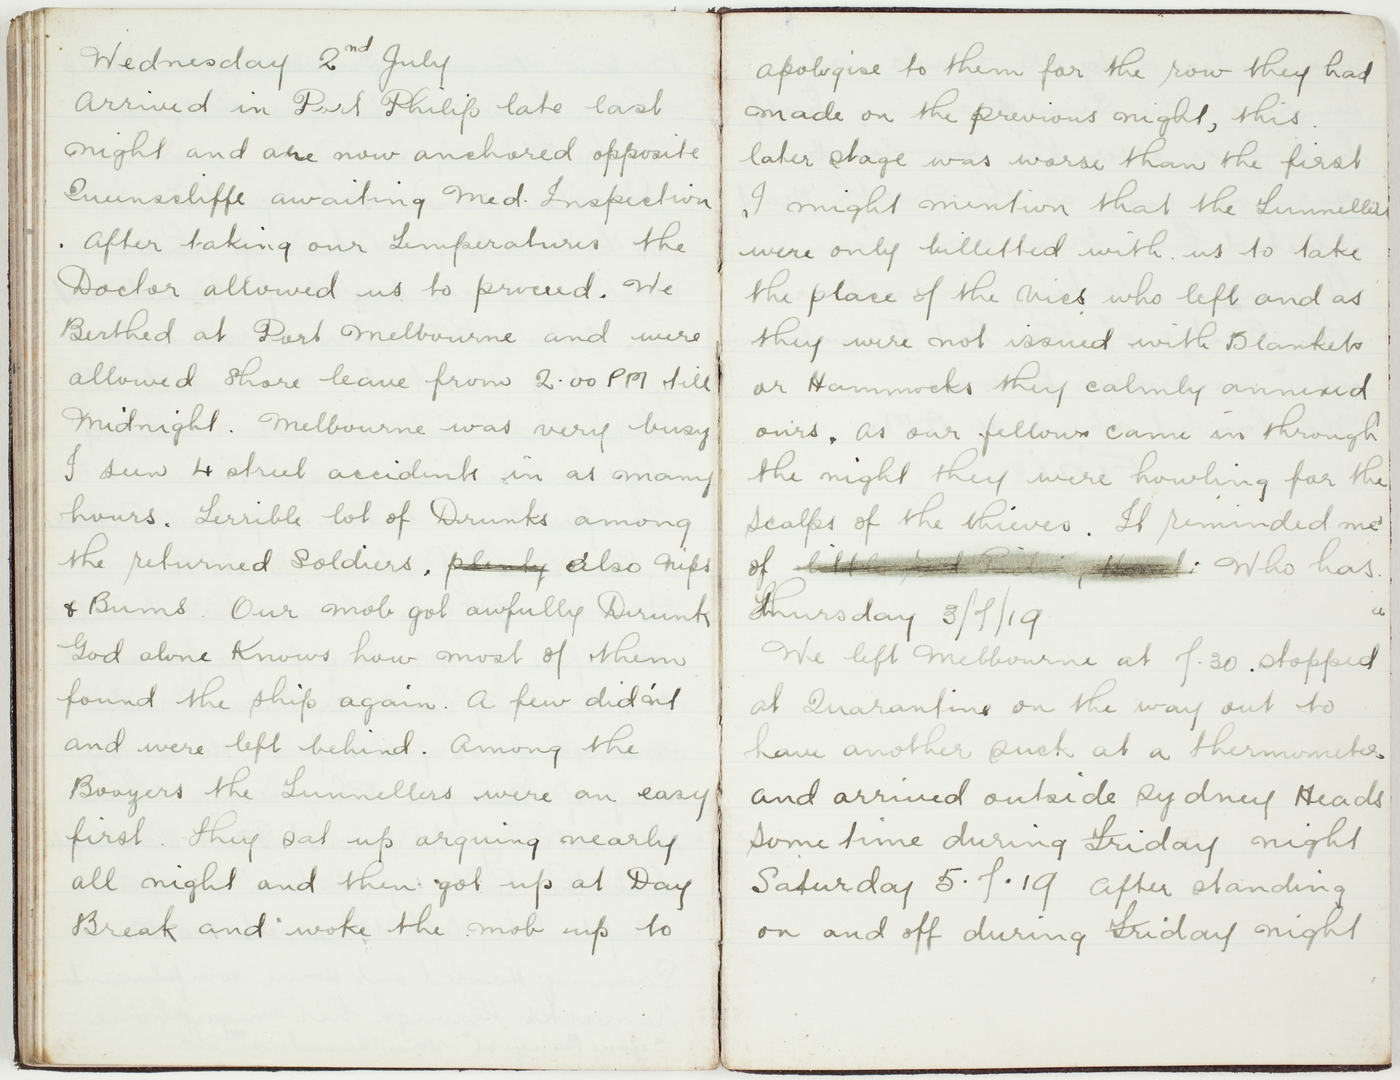 Wednesday 2nd July
Arrived in Port Philip late last
night and are now anchored opposite
Queenscliffe awaiting Med. Inspection
. After taking our Temperatures the
Doctor allowed us to proceed. We
Berthed at Port Melbourne and were
allowed Shore leave from 2.00 PM till
Midnight. Melbourne was very busy
I seen 4 street accidents in as many
hours. Terrible lot of Drunks among
the returned Soldiers. plenty also Nips
& Bums. Our mob got awfully Drunk
God alone Knows how most of them
found the ship again. A few didn't
and were left behind. Among the
Boozers the Tunnellers were an easy
first. They sat up arguing nearly
all night and then got up at Day
Break and woke the mob up to
apologise to them for the row they had
made on the previous night, this
later stage was worse than the first
. I might mention that the Tunnellers
were only billetted with us to take
the place of the Vics who left and as
they were not issued with Blankets
or Hammocks they calmly annexed
ours. As our fellows came in through
the night they were howling for the
scalps of the thieves. It reminded me
of : Who has
Thursday 3/7/19
We left Melbourne at 7.30. stopped
at Quarantine on the way out to
have another suck at a thermometer
and arrived outside Sydney Heads
some time during Friday night
Saturday 5.7.19 After standing
on and off during Friday night